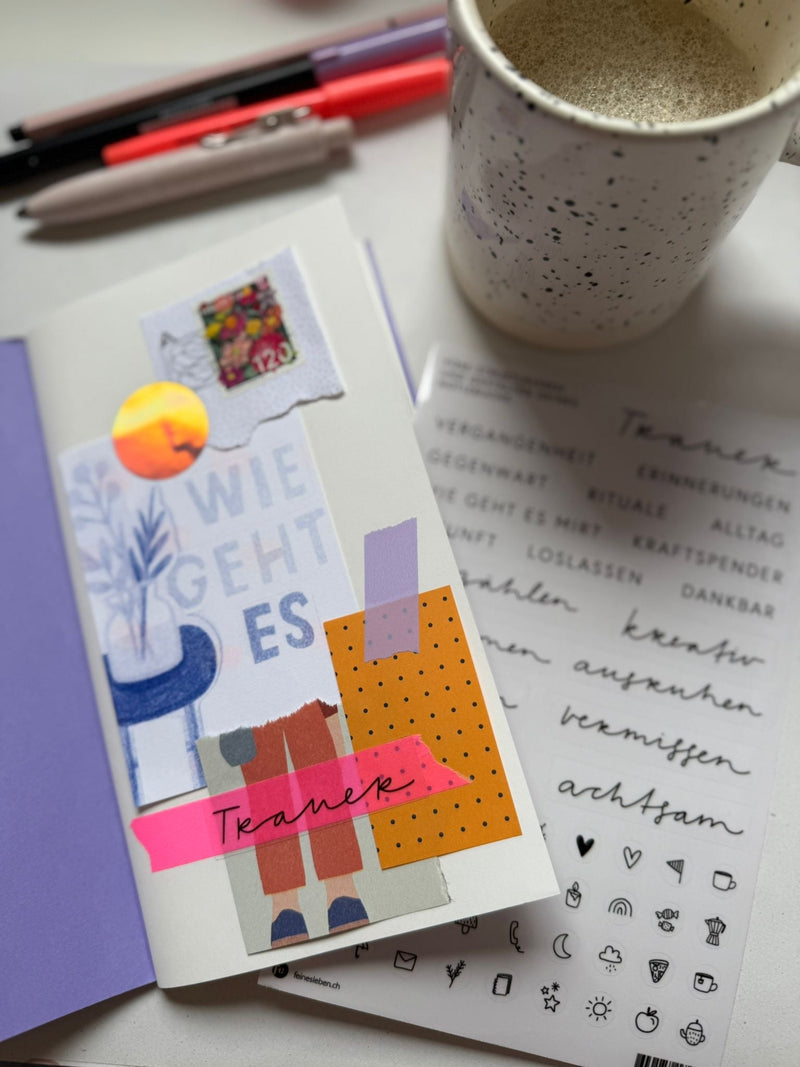 120
WIE
GEHT
ES
Trauer
Trauer
VERGANGENHEIT
ERINNERUNGEN
GEGENWART
RITUALE
ALLTAG
WIE GEHT ES MIR?
KRAFTSPENDER
LOSLASSEN
DANKBAR
kreativ
ausruhen
vermissen
achtsam
feinesleben.ch